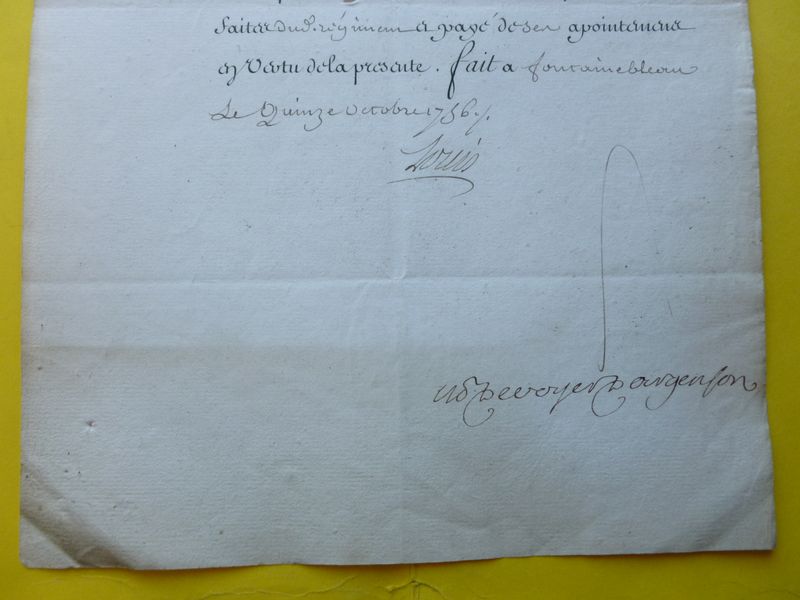 faites dud. régiment et payé de ses apointemens
en Vertu de la presente. fait a fontainebleau
Le Quinze octobre 1756 ./.
Louis
M De voyer D argenson